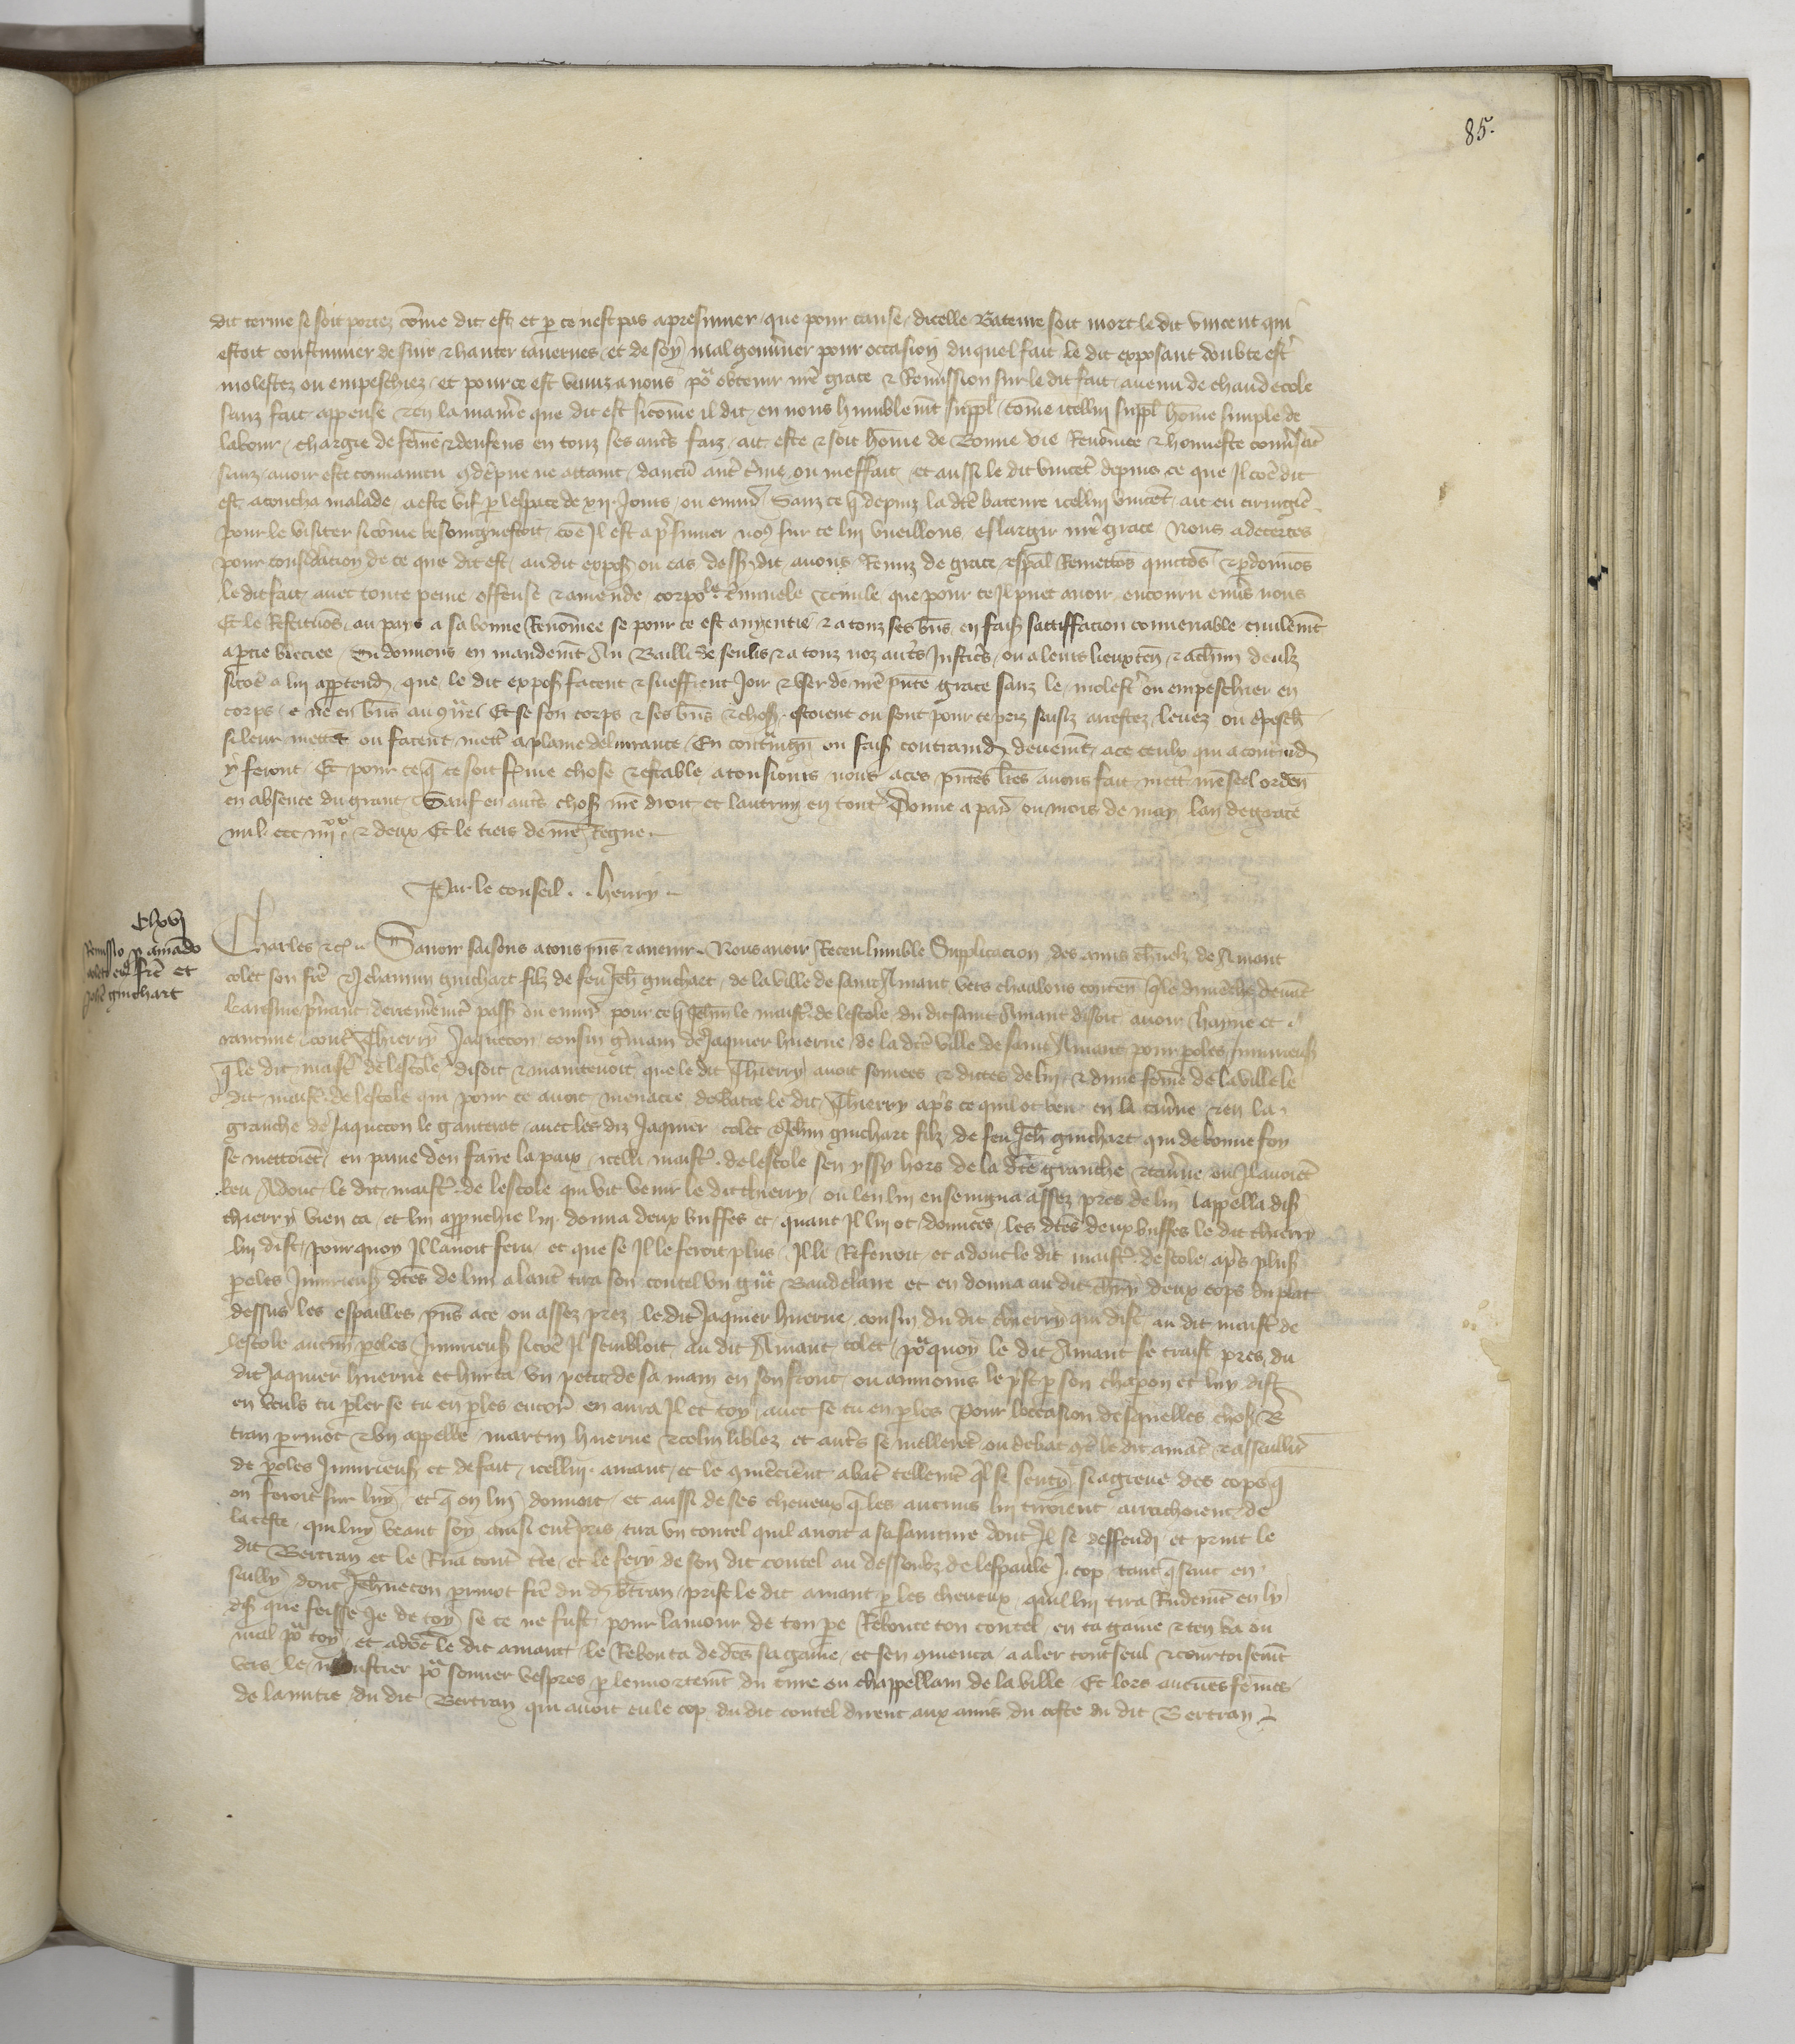 85.
dit terme se soit portez cõme dit est et p ce nest pas apresumer que pour cause dicelle bateure soit mort le dit vincent qui
estoit coustumier de suir & hanter tauernes et de soy mal gouuner pour occasion du quel fait le dit exposant doubte estr
molestez ou empeschiez et pour ce est venuz a nous po obtenir nre grace & Remission sur le dit fait auenu de chaude cole
sanz fait appense & en la manie que dit est sicõme il dit en nous humblemt suppl cõme icellui suppl hõme simple de
labour chargie de feme & denfens en touz ses autrs faiz ait este & soit hõme de bonne vie Renõmee & honneste conusac
sanz auoir este conuaincu ne attaint daucũ autre crime ou meffait et aussi le dit vincet depuis ce que Il coe dit
est acoucha malade a este vif p lespace de xij Jours ou enuir Sanz ce q depuiz la dte bateure icellui vincet ait eu cirurgie
pour le visiter sicõme besoing estoit coe Il est a psumer no sur ce lui vueillons eslargir nre grace Nous adecertes
pour considacion de ce que dit est au dit expos ou cas dessus dit auons Remis de grace espal Remettõs quictõs & pdonnõs
le dit fait auec toute peine offense & amende corpole criminele & ciuile que pour ce Il puet auoir encouru enuers nous
Et le Restituõs au pais a sa bonne Renõmee se pour ce est anyentie & a touz ses bns en fais satisffacion conuenable ciuilemt
a ptie bleciee Si donnons en mandemt Au Bailli de senlis & a touz noz autrs Justicrs ou a leurs lieuxten & a chun deulx
sicoe a lui apptendra que le dit expos facent & sueffrent Joir & vser de nre pnte grace sanz le molestr ou empeschier en
corps ne en bns au contraire Et se son corps & ses bns & choses estoient ou sont pour ce pris saisiz arrestez leuez ou epesch
si leur mettet ou facent mett a plaine deliurance En contraingn ou fais contraind deuemt a ce ceulx qui a contraid
y seront Et pour ce q ce soit fme chose & estable a tousiours nous a ces pntes lres auons fait mett nre seel orden
en absence du grant Sauf en autrs chos nre droit et lautruy en tout Donne a paris ou mois de may lan de grace
mil ccc iiij xx & deux Et le tiers de nre Regne
Par le conseil . . henry
Clxvj
Remissio p amãdo
colet eius frẽ et
Johẽ guichart
Charles &c Sauoir faisons a tous pns & auenir Nous auoir Receu humble Supplicacion des amis chnelz de Amont
colet son fre & Jehannin guichart filz de feu Jeh guichart de la ville de saint Amant vers chaalons conten q le dimeche deuat
karesme pnant derremt passe ou enuir pour ce q Jehan le maistr de lescole du dit saint Amant disoit auoir hayne et
rancune contr Thierry Jaqueton cousin gmain de Jaquier huerne de la dte ville de saint Amant pour poles Iniurieus
q le dit maistr de lescole disoit & maintenoit que le dit Thierry auoit semees & dictes de lui & dune feme de la ville le
dit maistr de lescole qui pour ce auoit menacie de batre le dit Thierry aps ce quil ot beu en la tauerne & en la
granche de Jaqueton le gauterat auec les diz Jaquier colet & Jehan guichart filz de feu Jeh guichart qui de bonne foy
se mettoiet en paine den faire la paix icelli maistr de lescole sen yssy hors de la dte granche & tauerne ou Il auoiet
beu Adonc le dit maistr de lescole qui vit venir le dit thierry ou len lui enseingna assez pres de lui lappella dis
thierry vien ca et lui appuchie lui donna deux buffes et quant Il lui ot donnees les dtes deux buffes le dit thierry
lui dist pour quoy Il lauoit feru et que se Il le feroit plus Il le Referroit et adonc le dit maistr descole aps plus
poles Iniurieus dtes de lun a lautr tira son coutel vn grat Baudelaire et en donna au dit thirry deux cops du plat
dessus les espaulles pns ace ou assez prez le dit Jaquier huerne cousin du dit thierry qui dist au dit maistr de
lescole aucuns poles Iniurieus sicoe Il sembloit au dit Amant colet po quoy le dit Amant se traist pres du
dit Jaquier huerne et hurta vn petit de sa main en son front ou aumoins le pst p son chapon et luy dist
en veuls tu pler se tu en ples encor en aura Il et toy auec se tu en ples Pour loccasion desquelles choses B
tran permot & vn appelle martin huerne & colin liblez et autrs se mellerẽt ou debat contre le dit amat & assaillir
de poles Iniurieus et de fait icellui amant et le comenciẽnt abatr tellemt ql se senti si agreue des cops q
on feroit sur luy et q on lui donnoit et aussi de ses cheueux q les aucuns lui tiroient arrachoient de
la teste qui luy veant soy ainsi entrpris tira vn coutel quil auoit a sa sainture dont Il se deffendi et print le
dit Bertran et le Rua contr tre et le fery de son dit coutel au dessoubz de lespaule J cop tant q sanc en
sailly dont Jehneton permot fre du dit btran prist le dit amant p les cheueux quil lui tira Rudemt en ly
dis que feisse Je de toy se ce ne fust pour lamour de ton pe Reboute ton coutel en ta gaine & ten va ou
mal po toy et adoc le dit amant le Rebouta dedes sa gaine et sen comenca a aler tout seul & courtoisemt
vers le moustier po sonner vespres p lenuortemt du cure ou chappellain de la ville Et lors aucunes femes
de lamitie du dit Bertran qui auoit eu le cop du dit coutel dirent aux amis du coste du dit Bertran